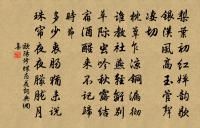 梨葉初紅蟬韵歇
銀漢風高玉管聲
凄切
枕簟乍涼銅漏徹
誰教社燕輕離別
草際蟲吟秋露結
宿酒醒來不記歸
時節
多少衷腸猶未說
珠簾夜夜朦朧月